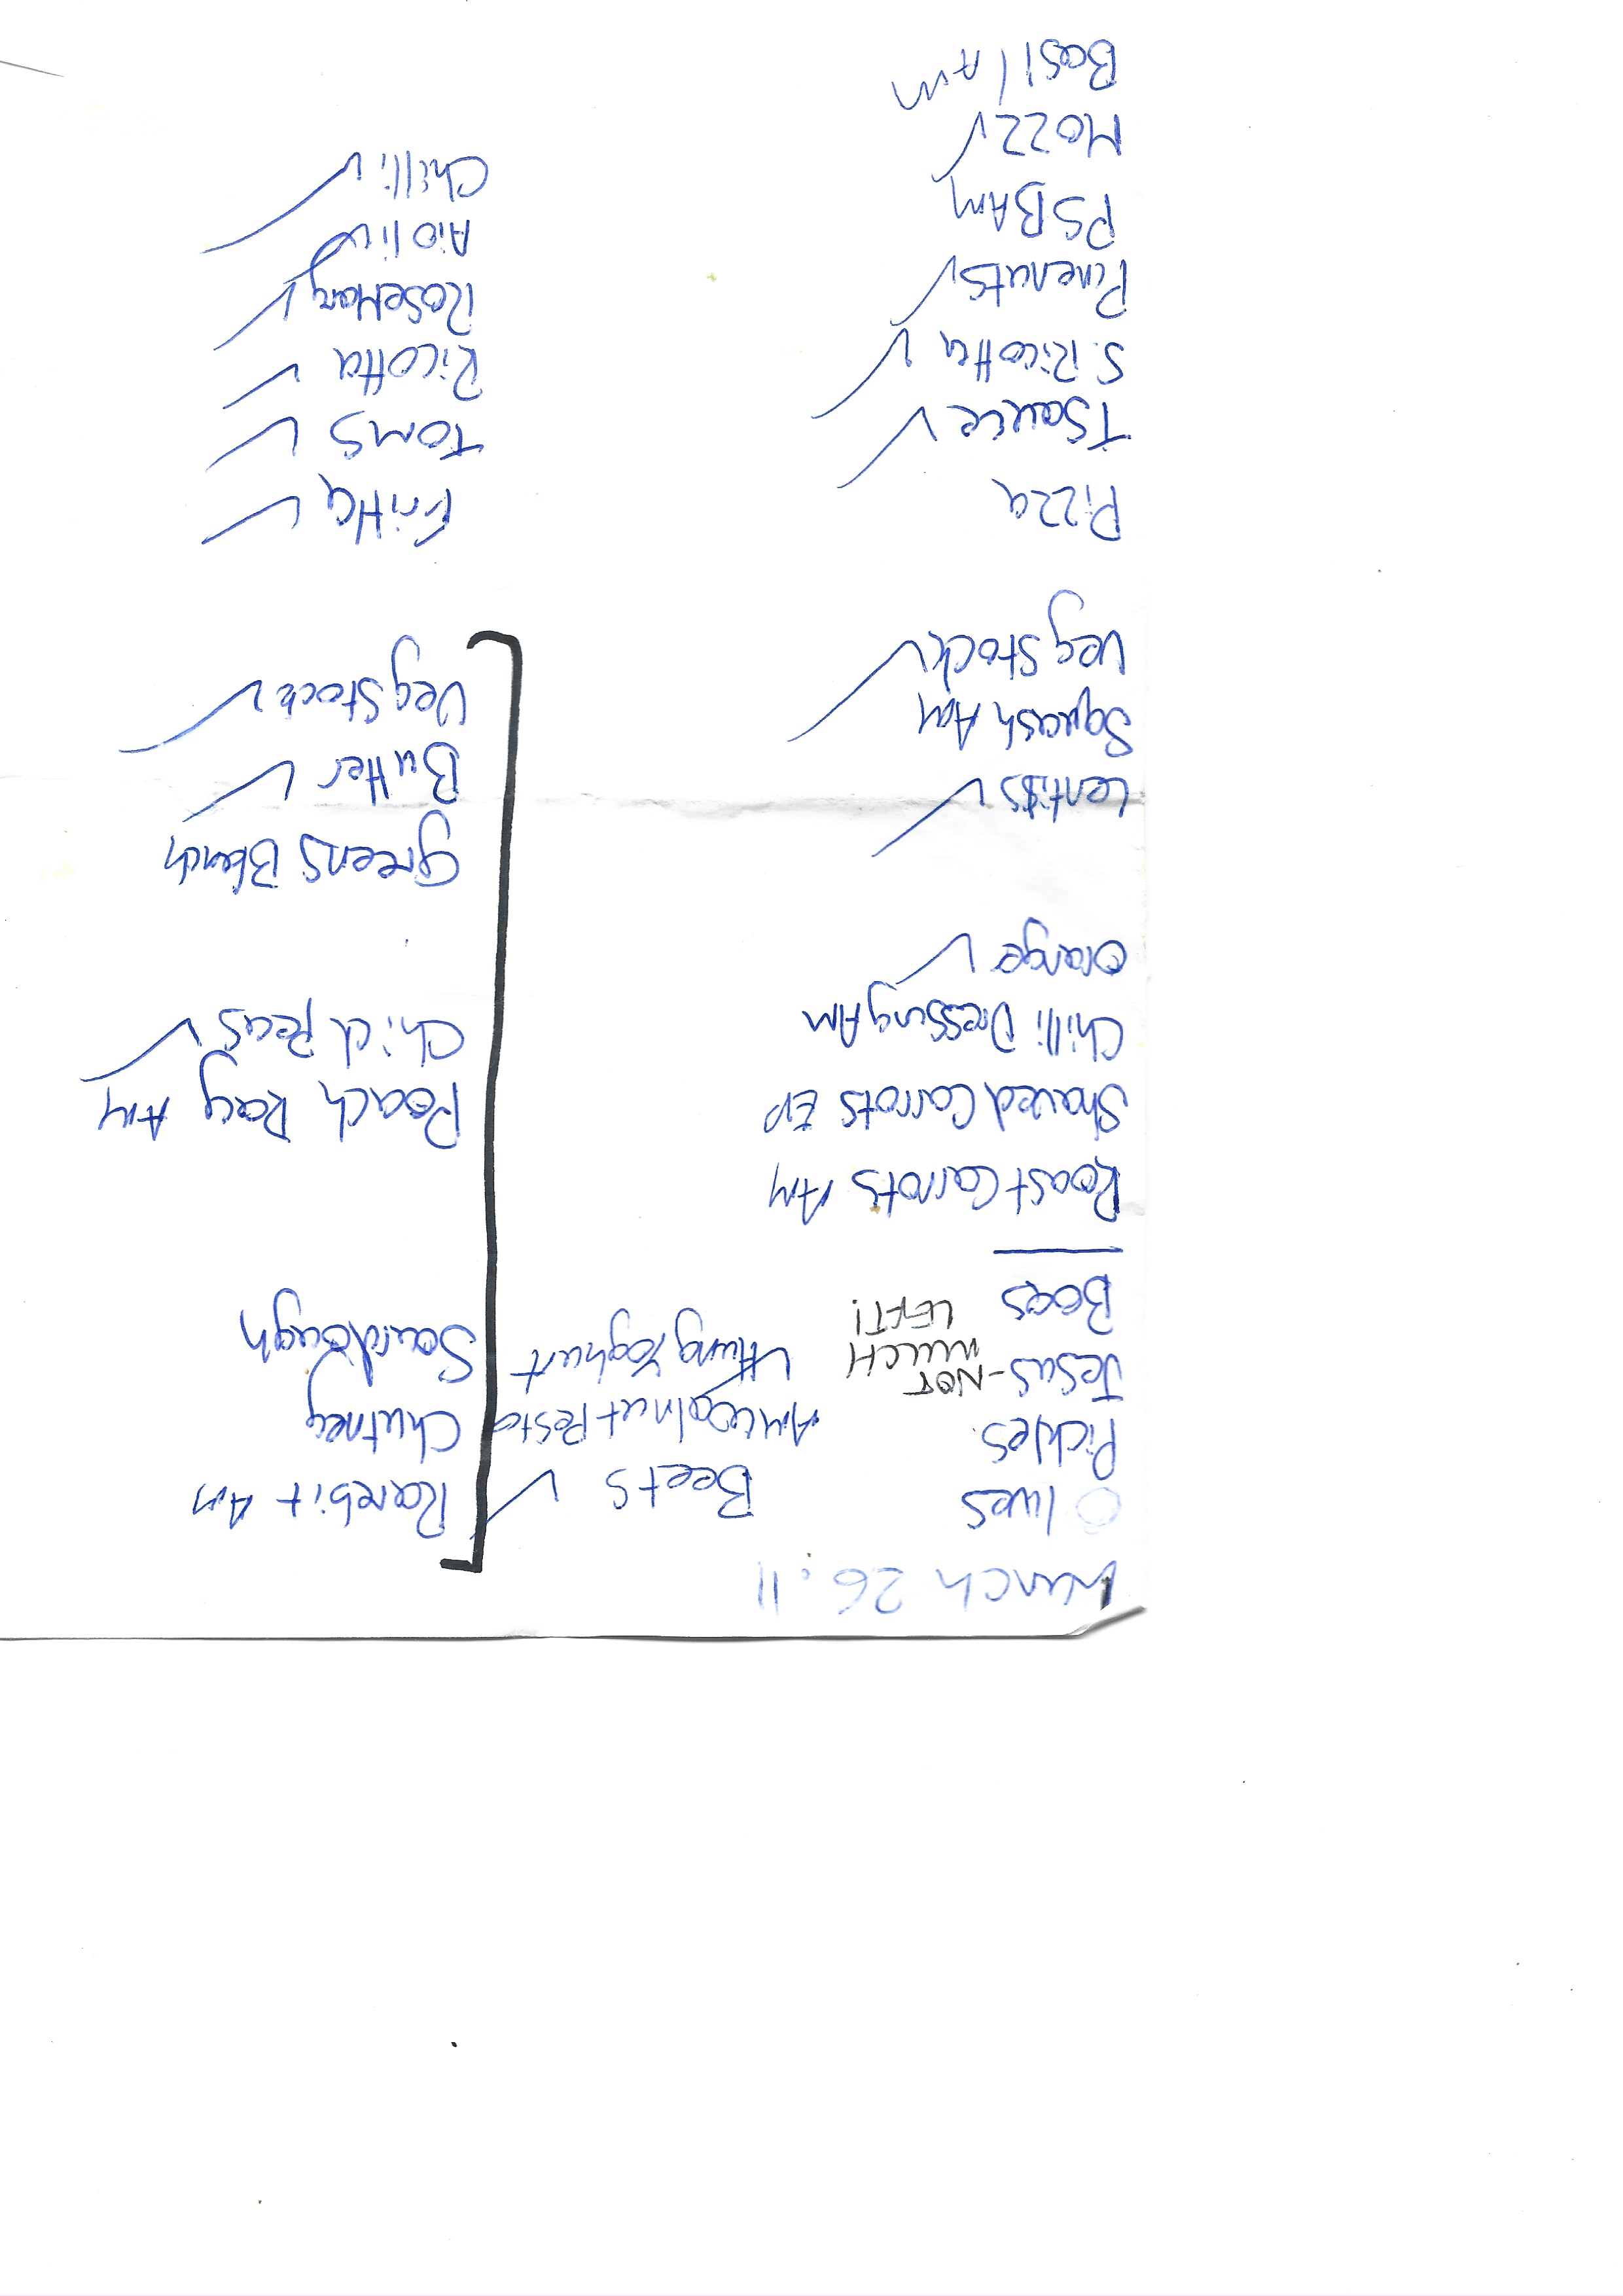 Lunch 26.11
Olives
Pickles
Jesus - NOT MUCH LEFT!
Baes
Roast Carrots Am
Shaved Carrots EP
Chilli Dressing Am
Orange ✓
Lentils ✓
Squash Am
Veg Stock ✓
Pizza
T Sauce ✓
S. Ricotta ✓
Pinenuts ✓
PSB Am
Mozz ✓
Basil Am
Beets ✓
Am Walnut Pesto
Hung Yoghurt ✓
Rarebit Am
Chutney
Sourdough
Poach Am
Chick Peas ✓
Greens Blanch
Butter ✓
Veg Stock ✓
Fritta ✓
Toms ✓
Ricotta ✓
Rosemary ✓
Aioli ✓
Chilli ✓